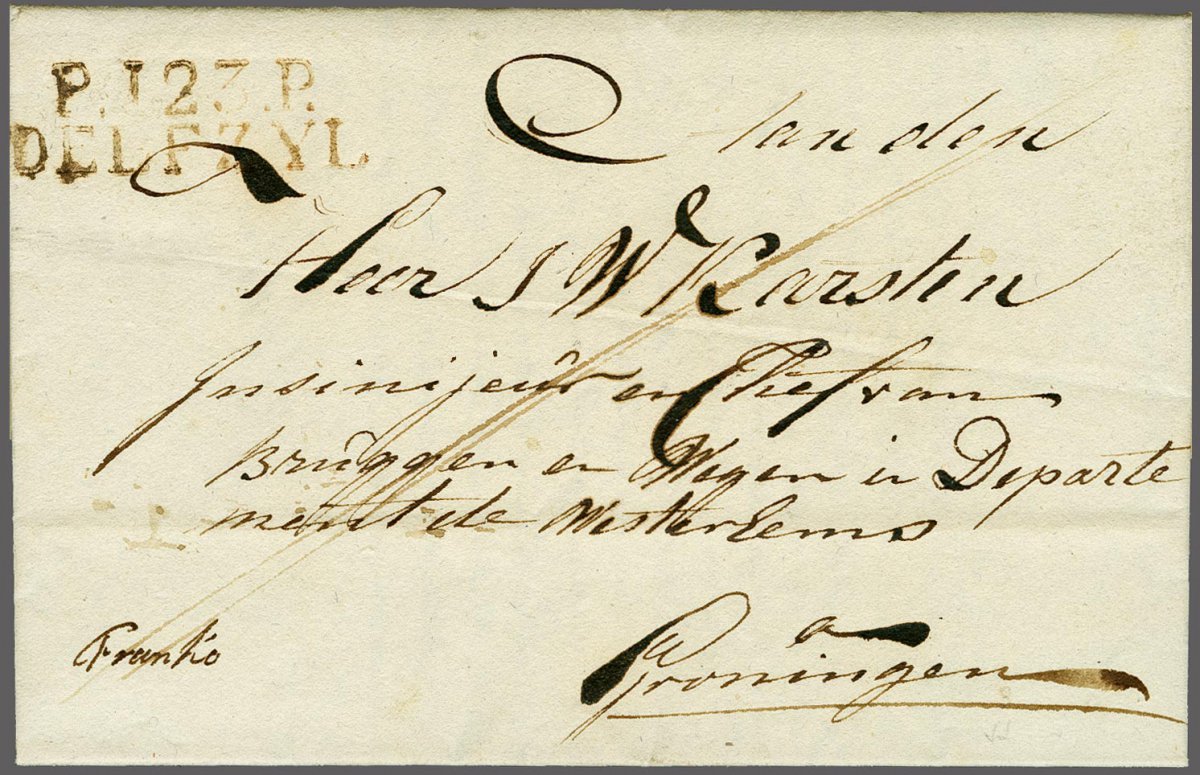 P.123.P.
DELFZYL.
Aan den
Heer J W Karsten
Insinijeur en Chef van
Bruggen en Wegen in Departe
ment de Wester Eems
a
Groningen
Franko